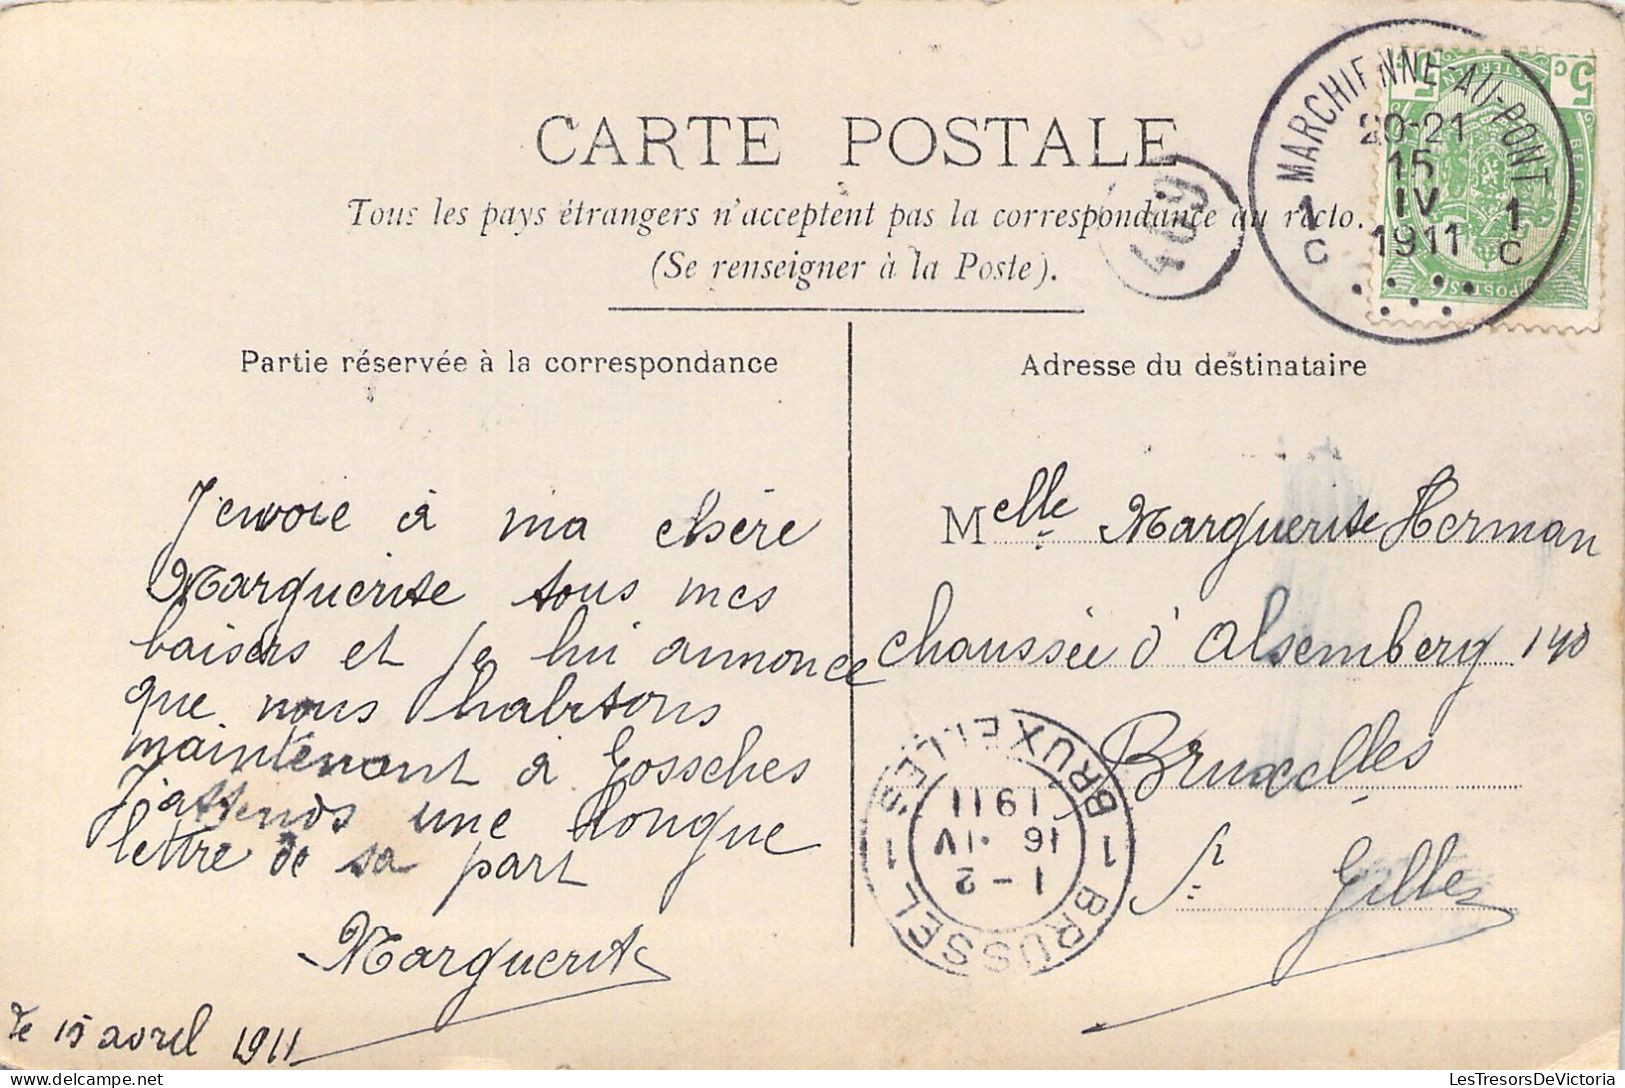 CARTE POSTALE
Tous les pays étrangers n'acceptent pas la correspondance au recto.
(Se renseigner à la Poste).
409
MARCHIENNE-AU-PONT
20-21
15
IV
1911
1 C
1 C
5 C
5
POSTES
Partie réservée à la correspondance
J'envoie à ma chère
Marguerite tous mes
baisers et je lui annonce
que nous habitons
maintenant à Gosselies
J'attends une longue
lettre de sa part
Marguerite
le 15 avril 1911
Adresse du destinataire
Melle Marguerite Herman
chaussée d'Alsemberg 140
Bruxelles
St Gilles
BRUXELLES
1 BRUSSEL 1
1-2
16 IV
1911
LesTresorsDeVictoria